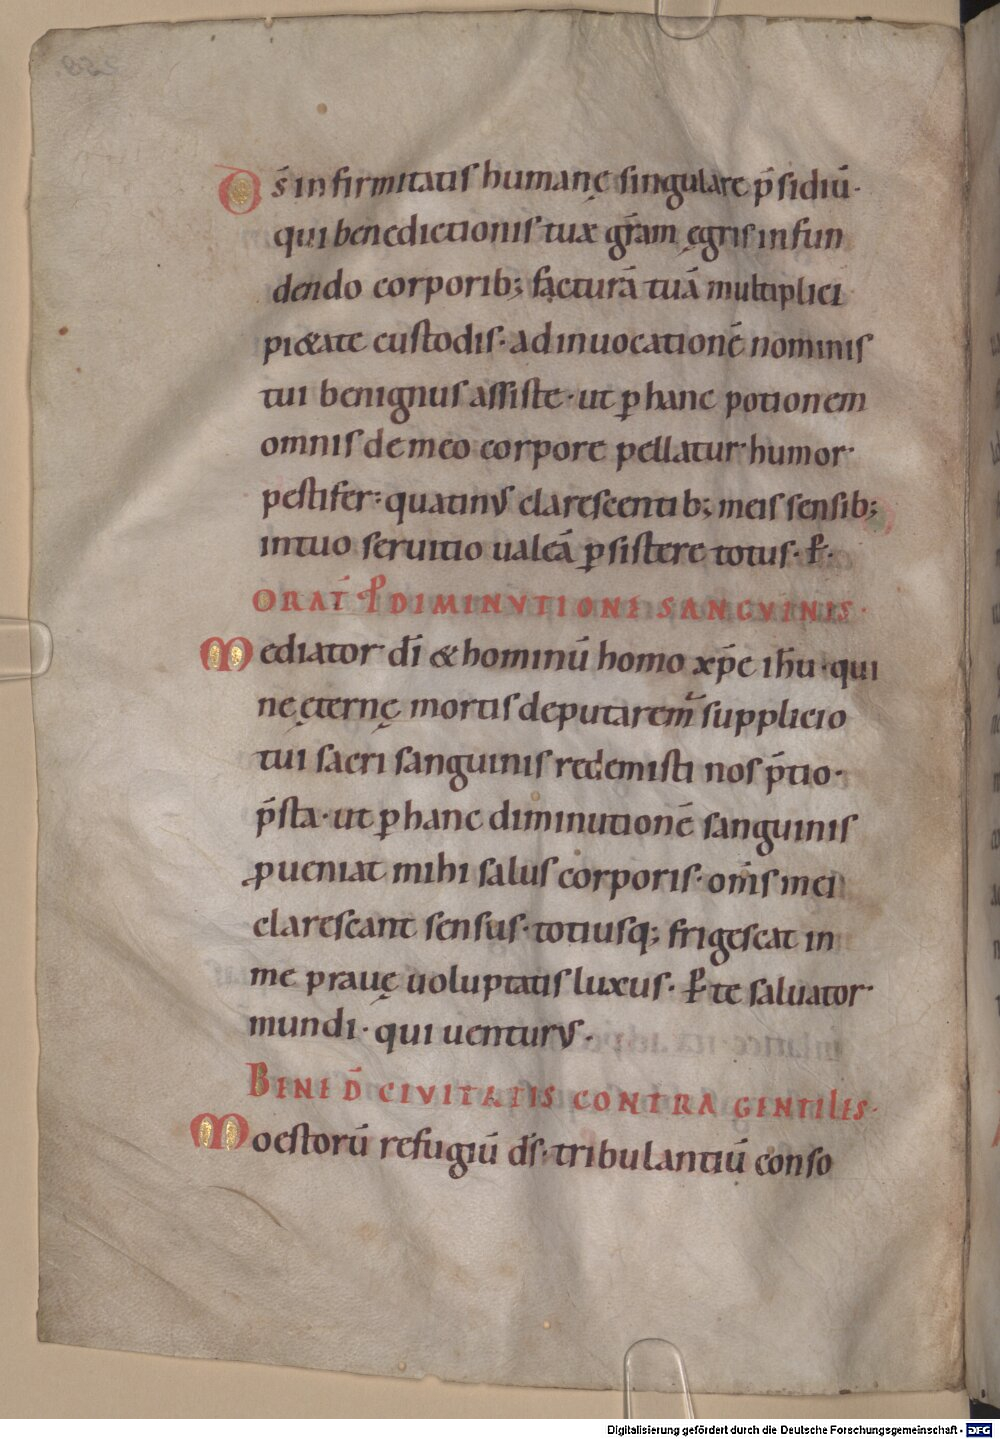 D s̄ infirmitatis humanę singulare p̄sidiū·
qui benedictionis tuæ gr̄am ęgris infun
dendo corporib; facturā tuā multiplici
pi&ate custodis· ad inuocationē nominis
tui benignus assiste· ut ꝑ hanc potionem
omnis de meo corpore pellatur humor
pestifer: quatinus clarescentib; meis sensib;
in tuo seruitio ualeā ꝑsistere totus· ꝑ·
ORAT̄ ꝑ DIMINVTIONE SANGVINIS·
Mediator dī & hominū homo xp̄e ih̄u· qui
ne ęternę mortis deputarem᷑ supplicio
tui sacri sanguinis redemisti nos p̄tio·
p̄sta· ut ꝑ hanc diminutionē sanguinis
ꝓueniat mihi salus corporis· om̄s mei
clarescant sensus· totiusq; frigescat in
me prauę uoluptatis luxus· ꝑ te saluator
mundi· qui uenturus·
BENED̄ CIVITATIS CONTRA GENTILES·
Moestorū refugiū d̄s· tribulantiū conso
Digitalisierung gefördert durch die Deutsche Forschungsgemeinschaft - DFG